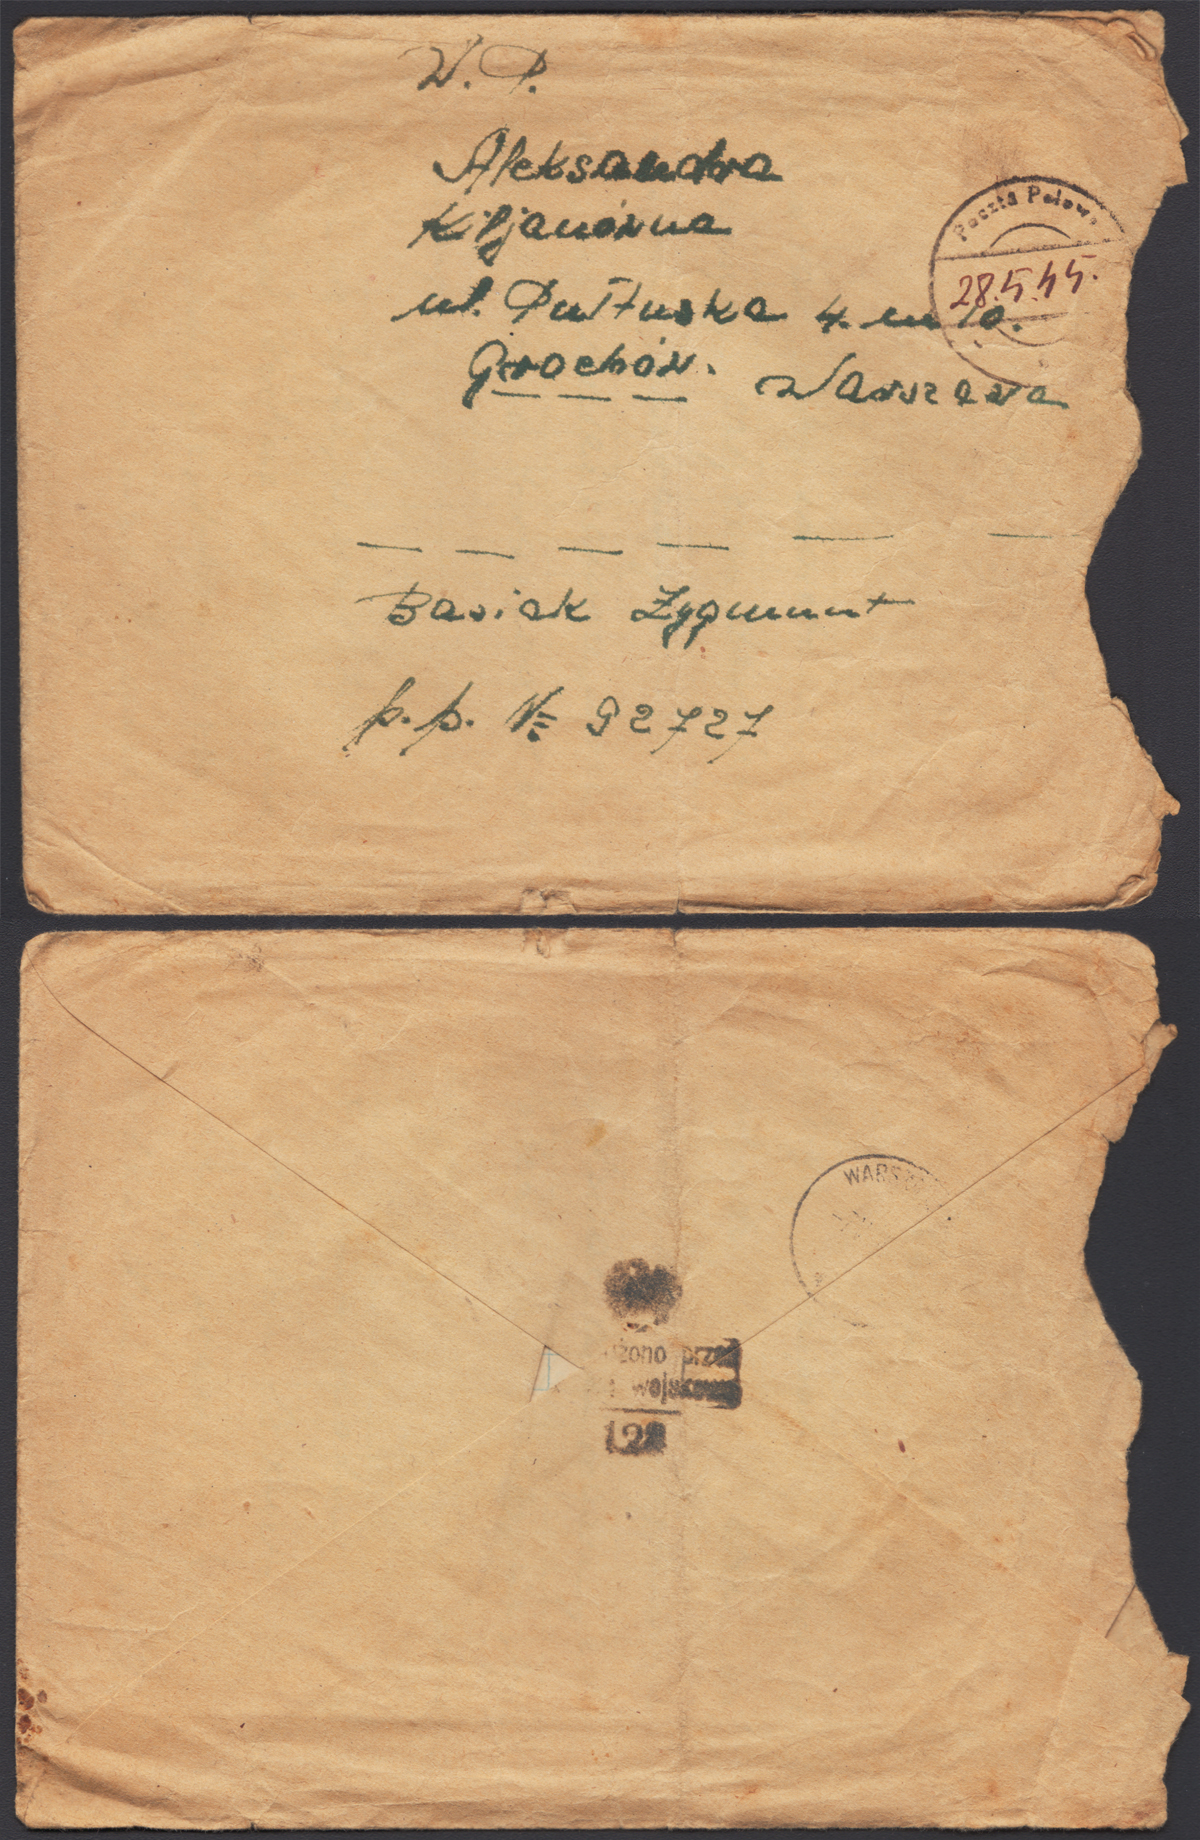 W. P.
Aleksandra
Kiljanówna
ul. Pułtuska 4. m 10.
Grochów. Warszawa
Poczta Polowa
28.5.45.
Basiak Zygmunt
p.p. № 92727
WARSZ
żono prze
wojskową